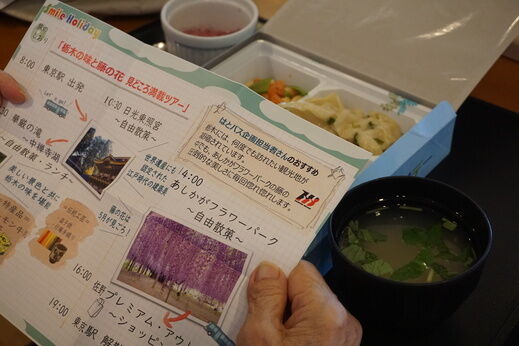 Smile Holiday
「栃木の味と藤の花 見どころ満載ツアー」
8:00 東京駅 出発
10:30 日光東照宮
～自由散策～
世界遺産にも
認定された
江戸時代の建築美
華厳の滝
中禅寺湖
～自由散策・ランチ～
美しい景色と共に
栃木の味を堪能
はとバス企画担当者さんのおすすめ
栃木には、何度でも訪れたい観光地が
凝縮されています。
中でも、あしかがフラワーパークの藤の
幻想的な美しさに毎回惚れ惚れします。
14:00
あしかがフラワーパーク
～自由散策～
藤の花は
5月が見ごろ!
16:00
佐野プレミアム・アウトレ
～ショッピ
19:00
東京駅 解散